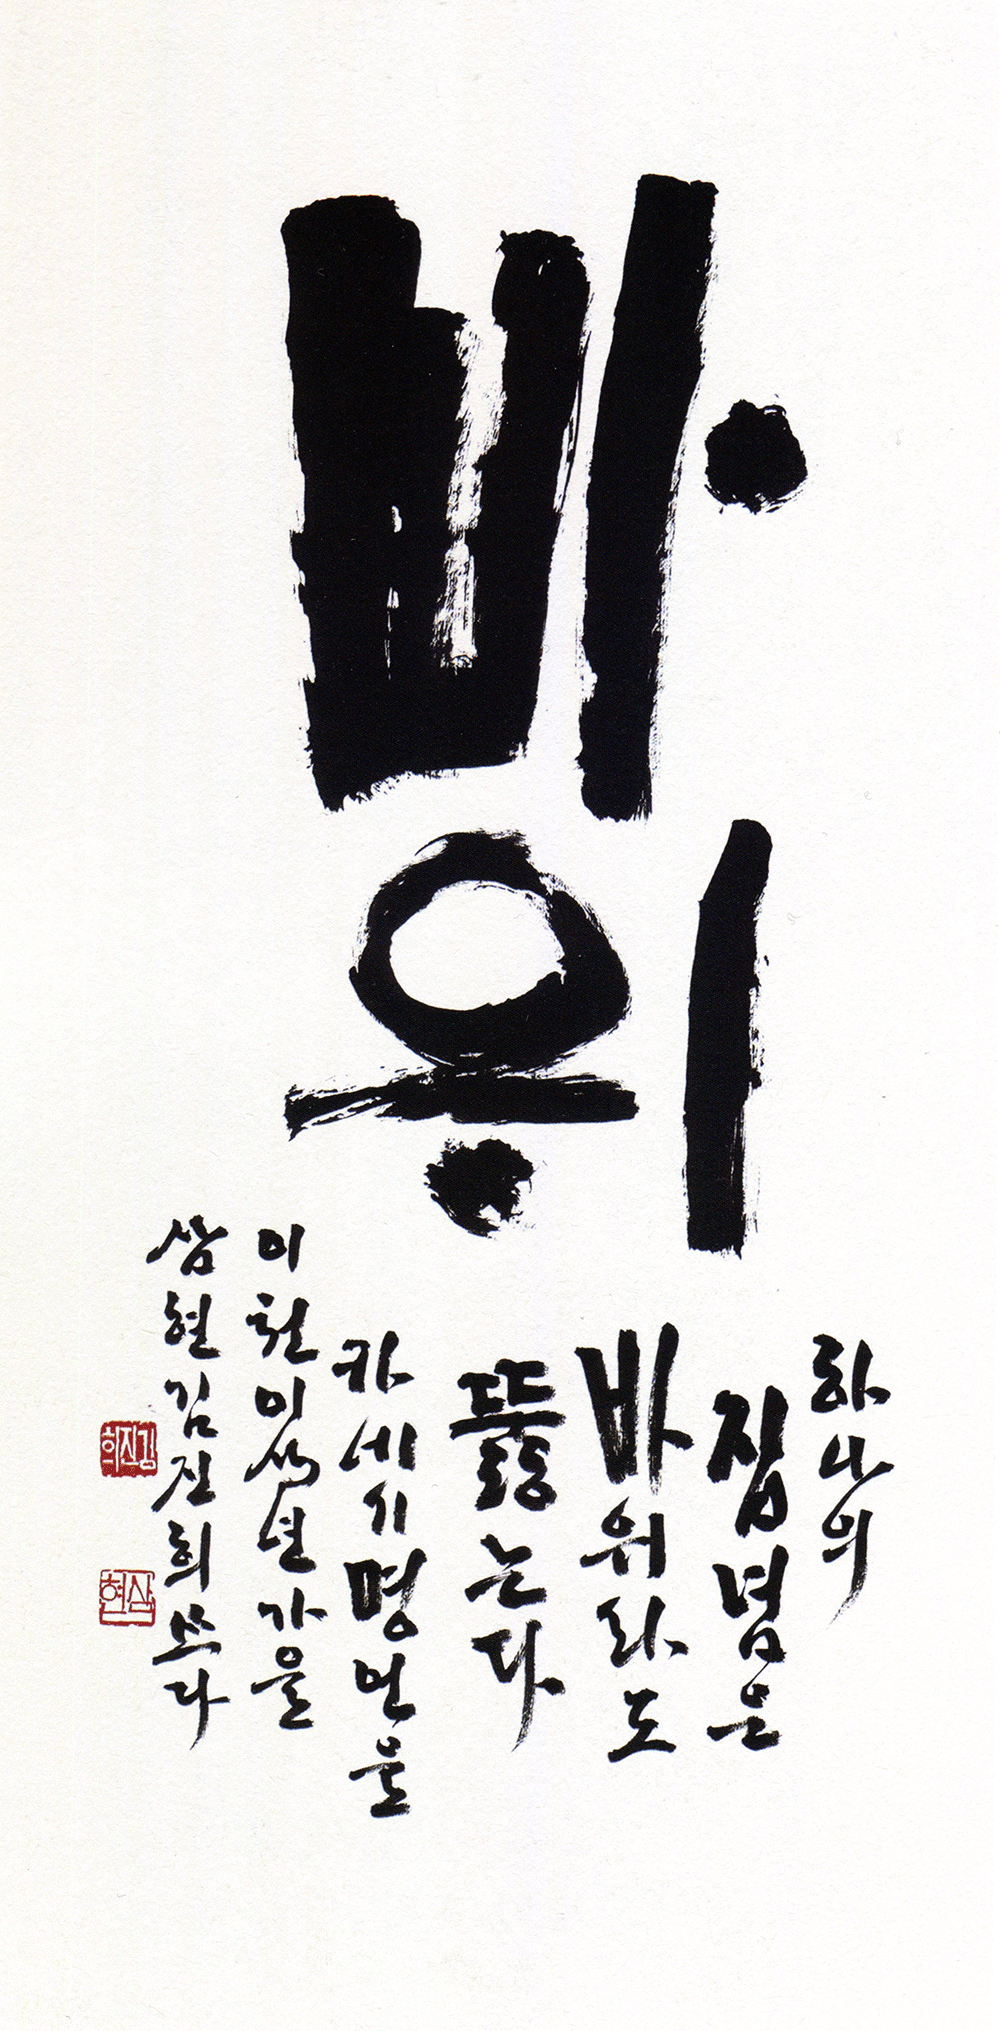 바위
하나의
집념은
바위라도
뚫는다
카네기 명언을
이천이십년 가을
삼현 김진희 쓰다
김진희
삼현